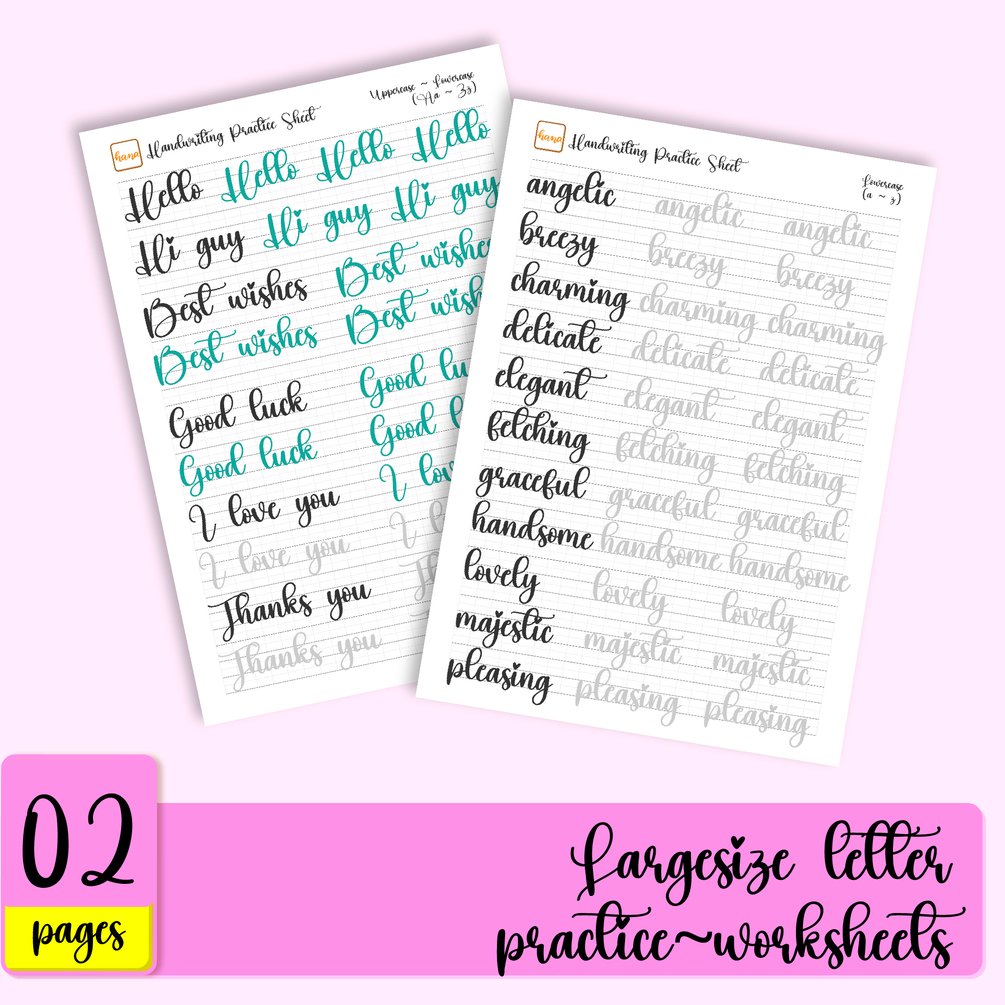 hana Handwriting Practice Sheet
Uppercase ~ Lowercase
(Aa ~ Zz)
Hello Hello Hello Hello
Hi guy Hi guy Hi guy
Best wishes Best wishes
Best wishes Best wish
Good luck Good lu
Good luck Good l
I love you I lov
I love you I l
Thanks you
Thanks you
hana Handwriting Practice Sheet
Lowercase
(a ~ z)
angelic angelic angelic
breezy breezy breezy
charming charming charming
delicate delicate delicate
elegant elegant elegant
fetching fetching fetching
graceful graceful graceful
handsome handsome handsome
lovely lovely lovely
majestic majestic majestic
pleasing pleasing pleasing
02
pages
Largesize letter
practice~worksheets